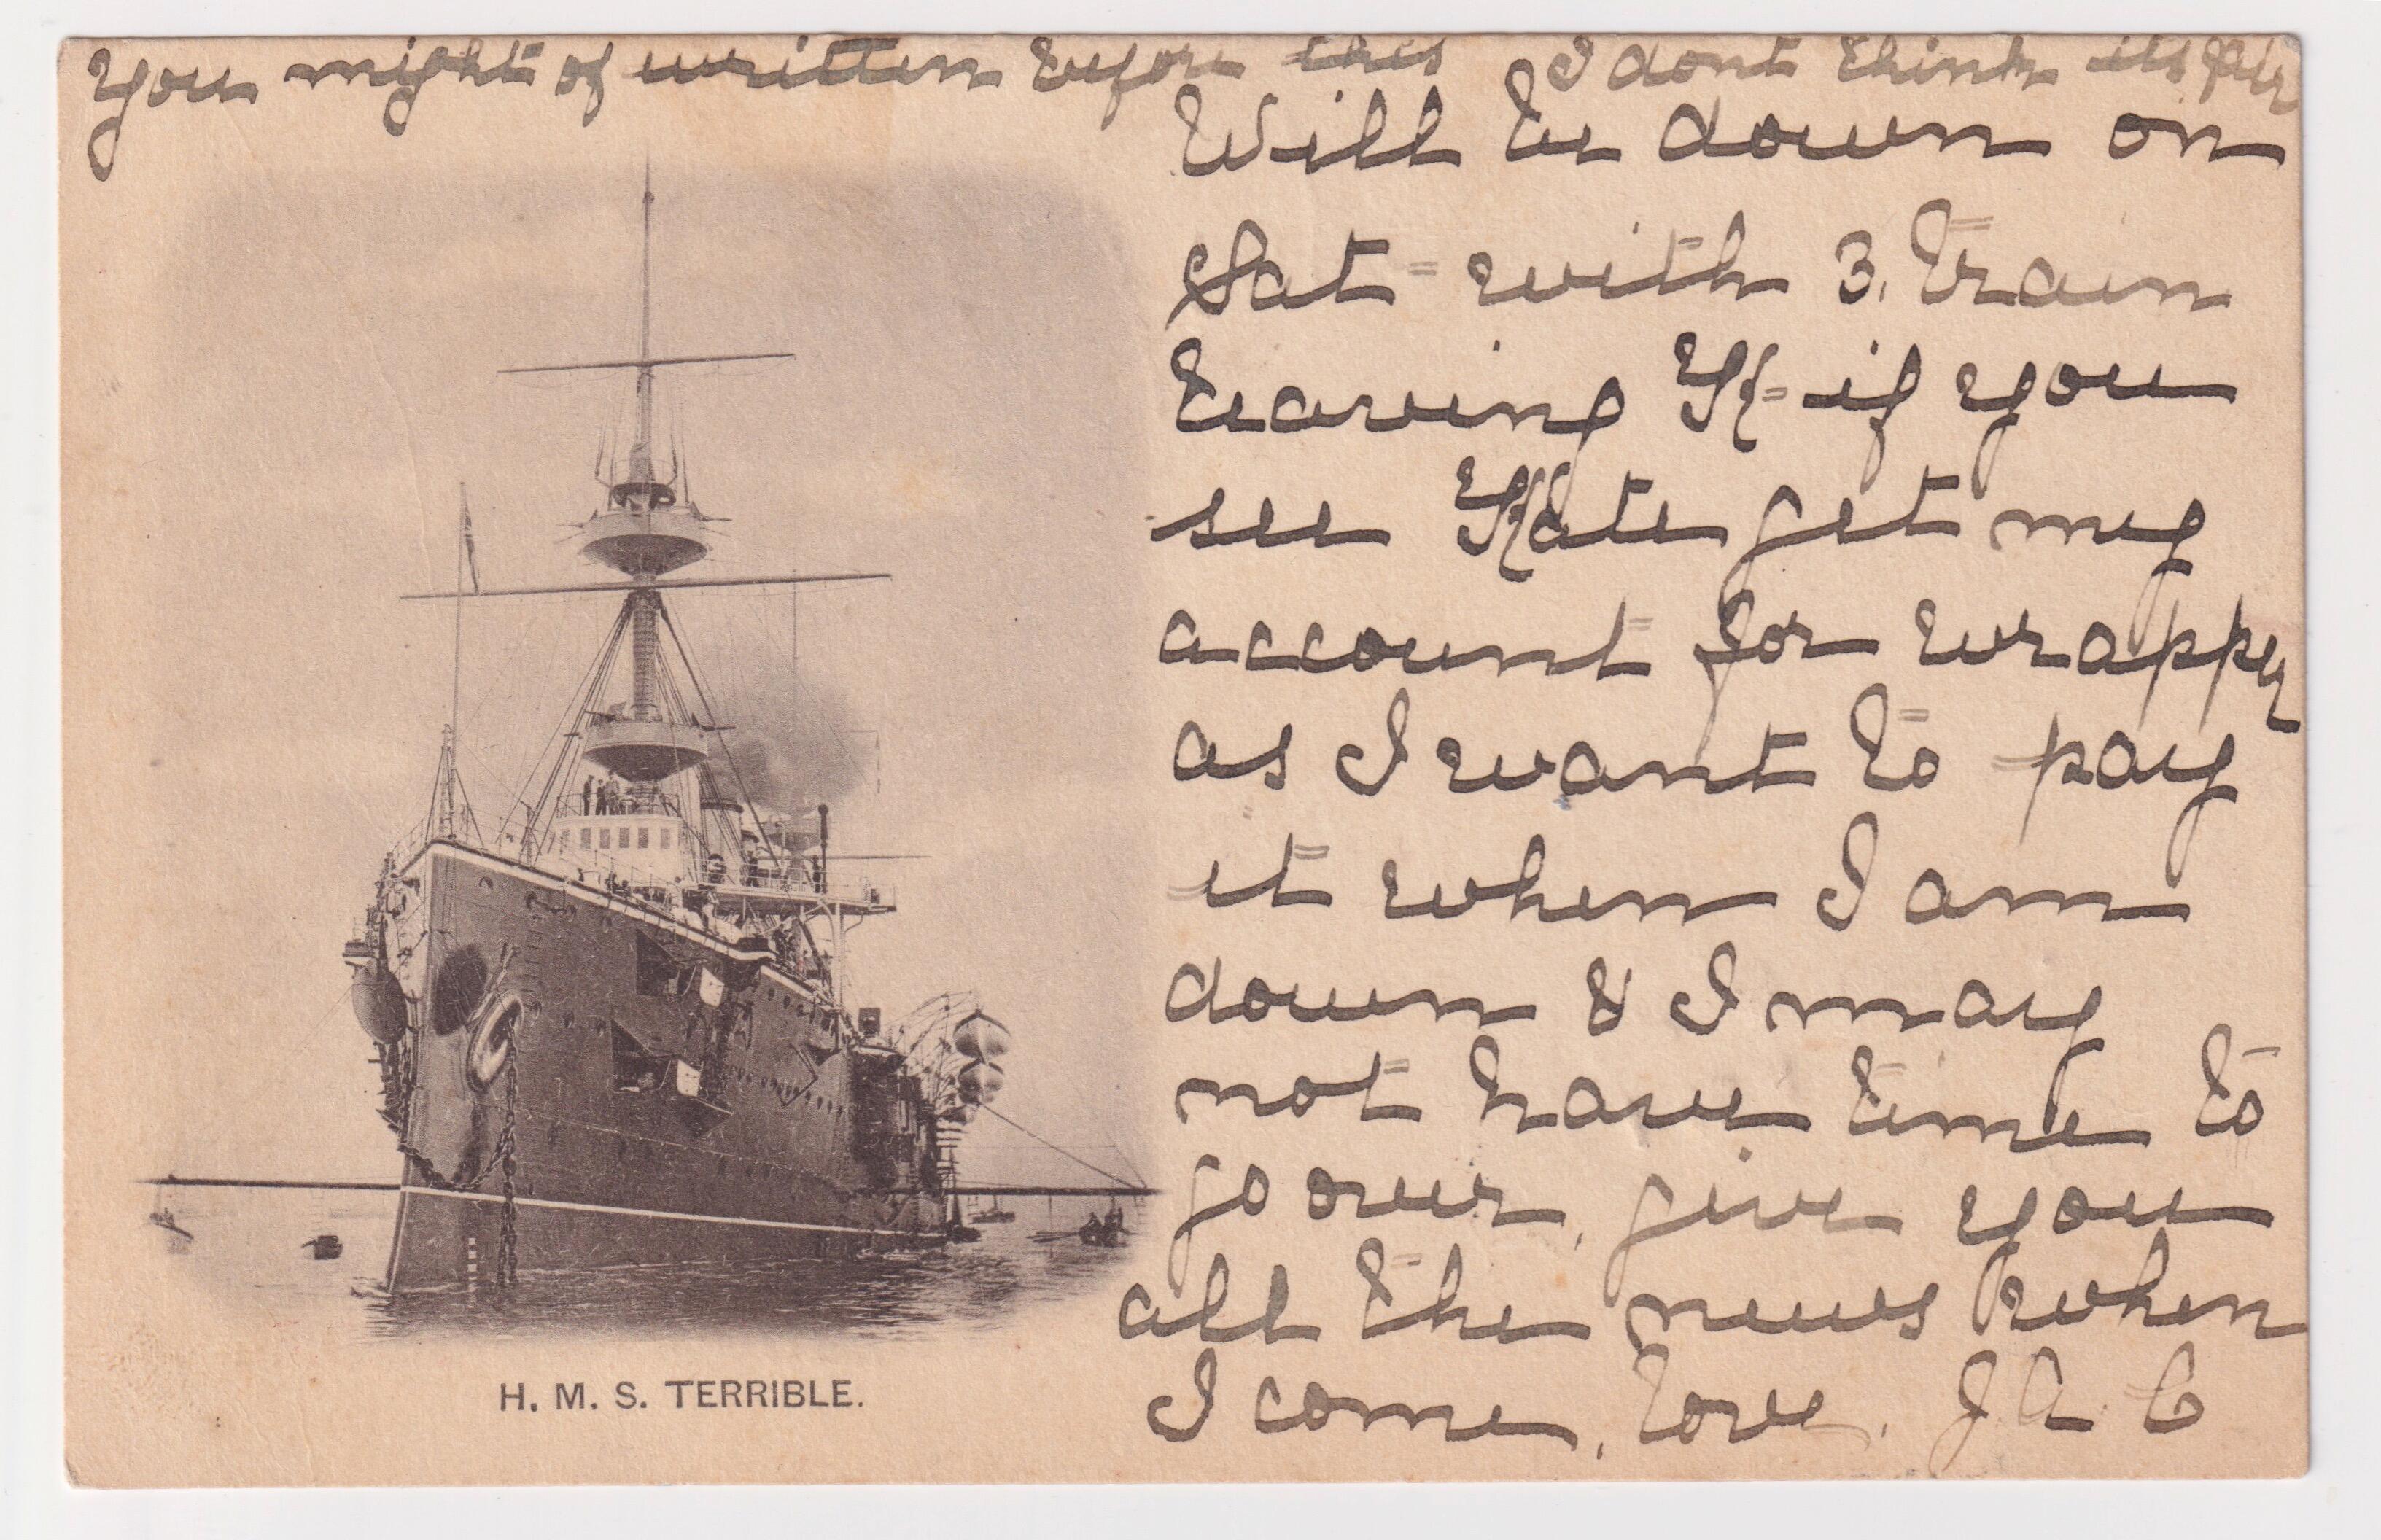 you might of written before this I dont think its fair
Will be down on
Sat = with 3. train
leaving H = if you
see Kate get my
account for wrappy
as I want to pay
it when I am
down & I may
not have time to
go over, give you
all the news when
I come, love. J A C
H. M. S. TERRIBLE.